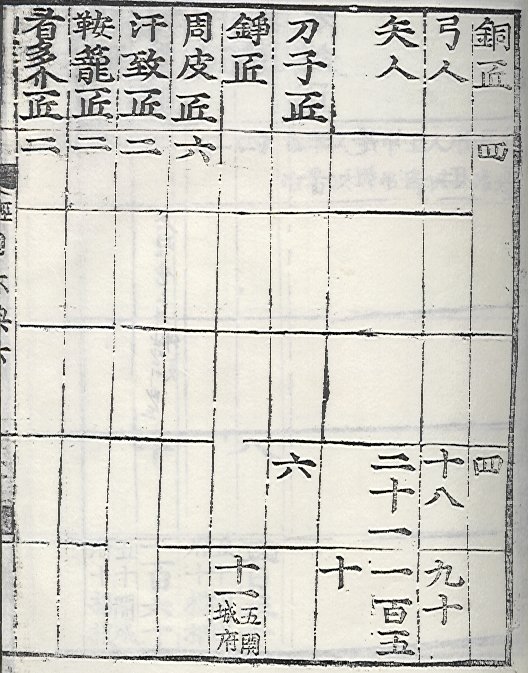 銅匠 四 四
弓人 十八 九十
矢人 二十一 一百五
十
刀子匠 六
錚匠 十一 五開城府
周皮匠 六
汗致匠 二
鞍籠匠 二
看多介匠 二